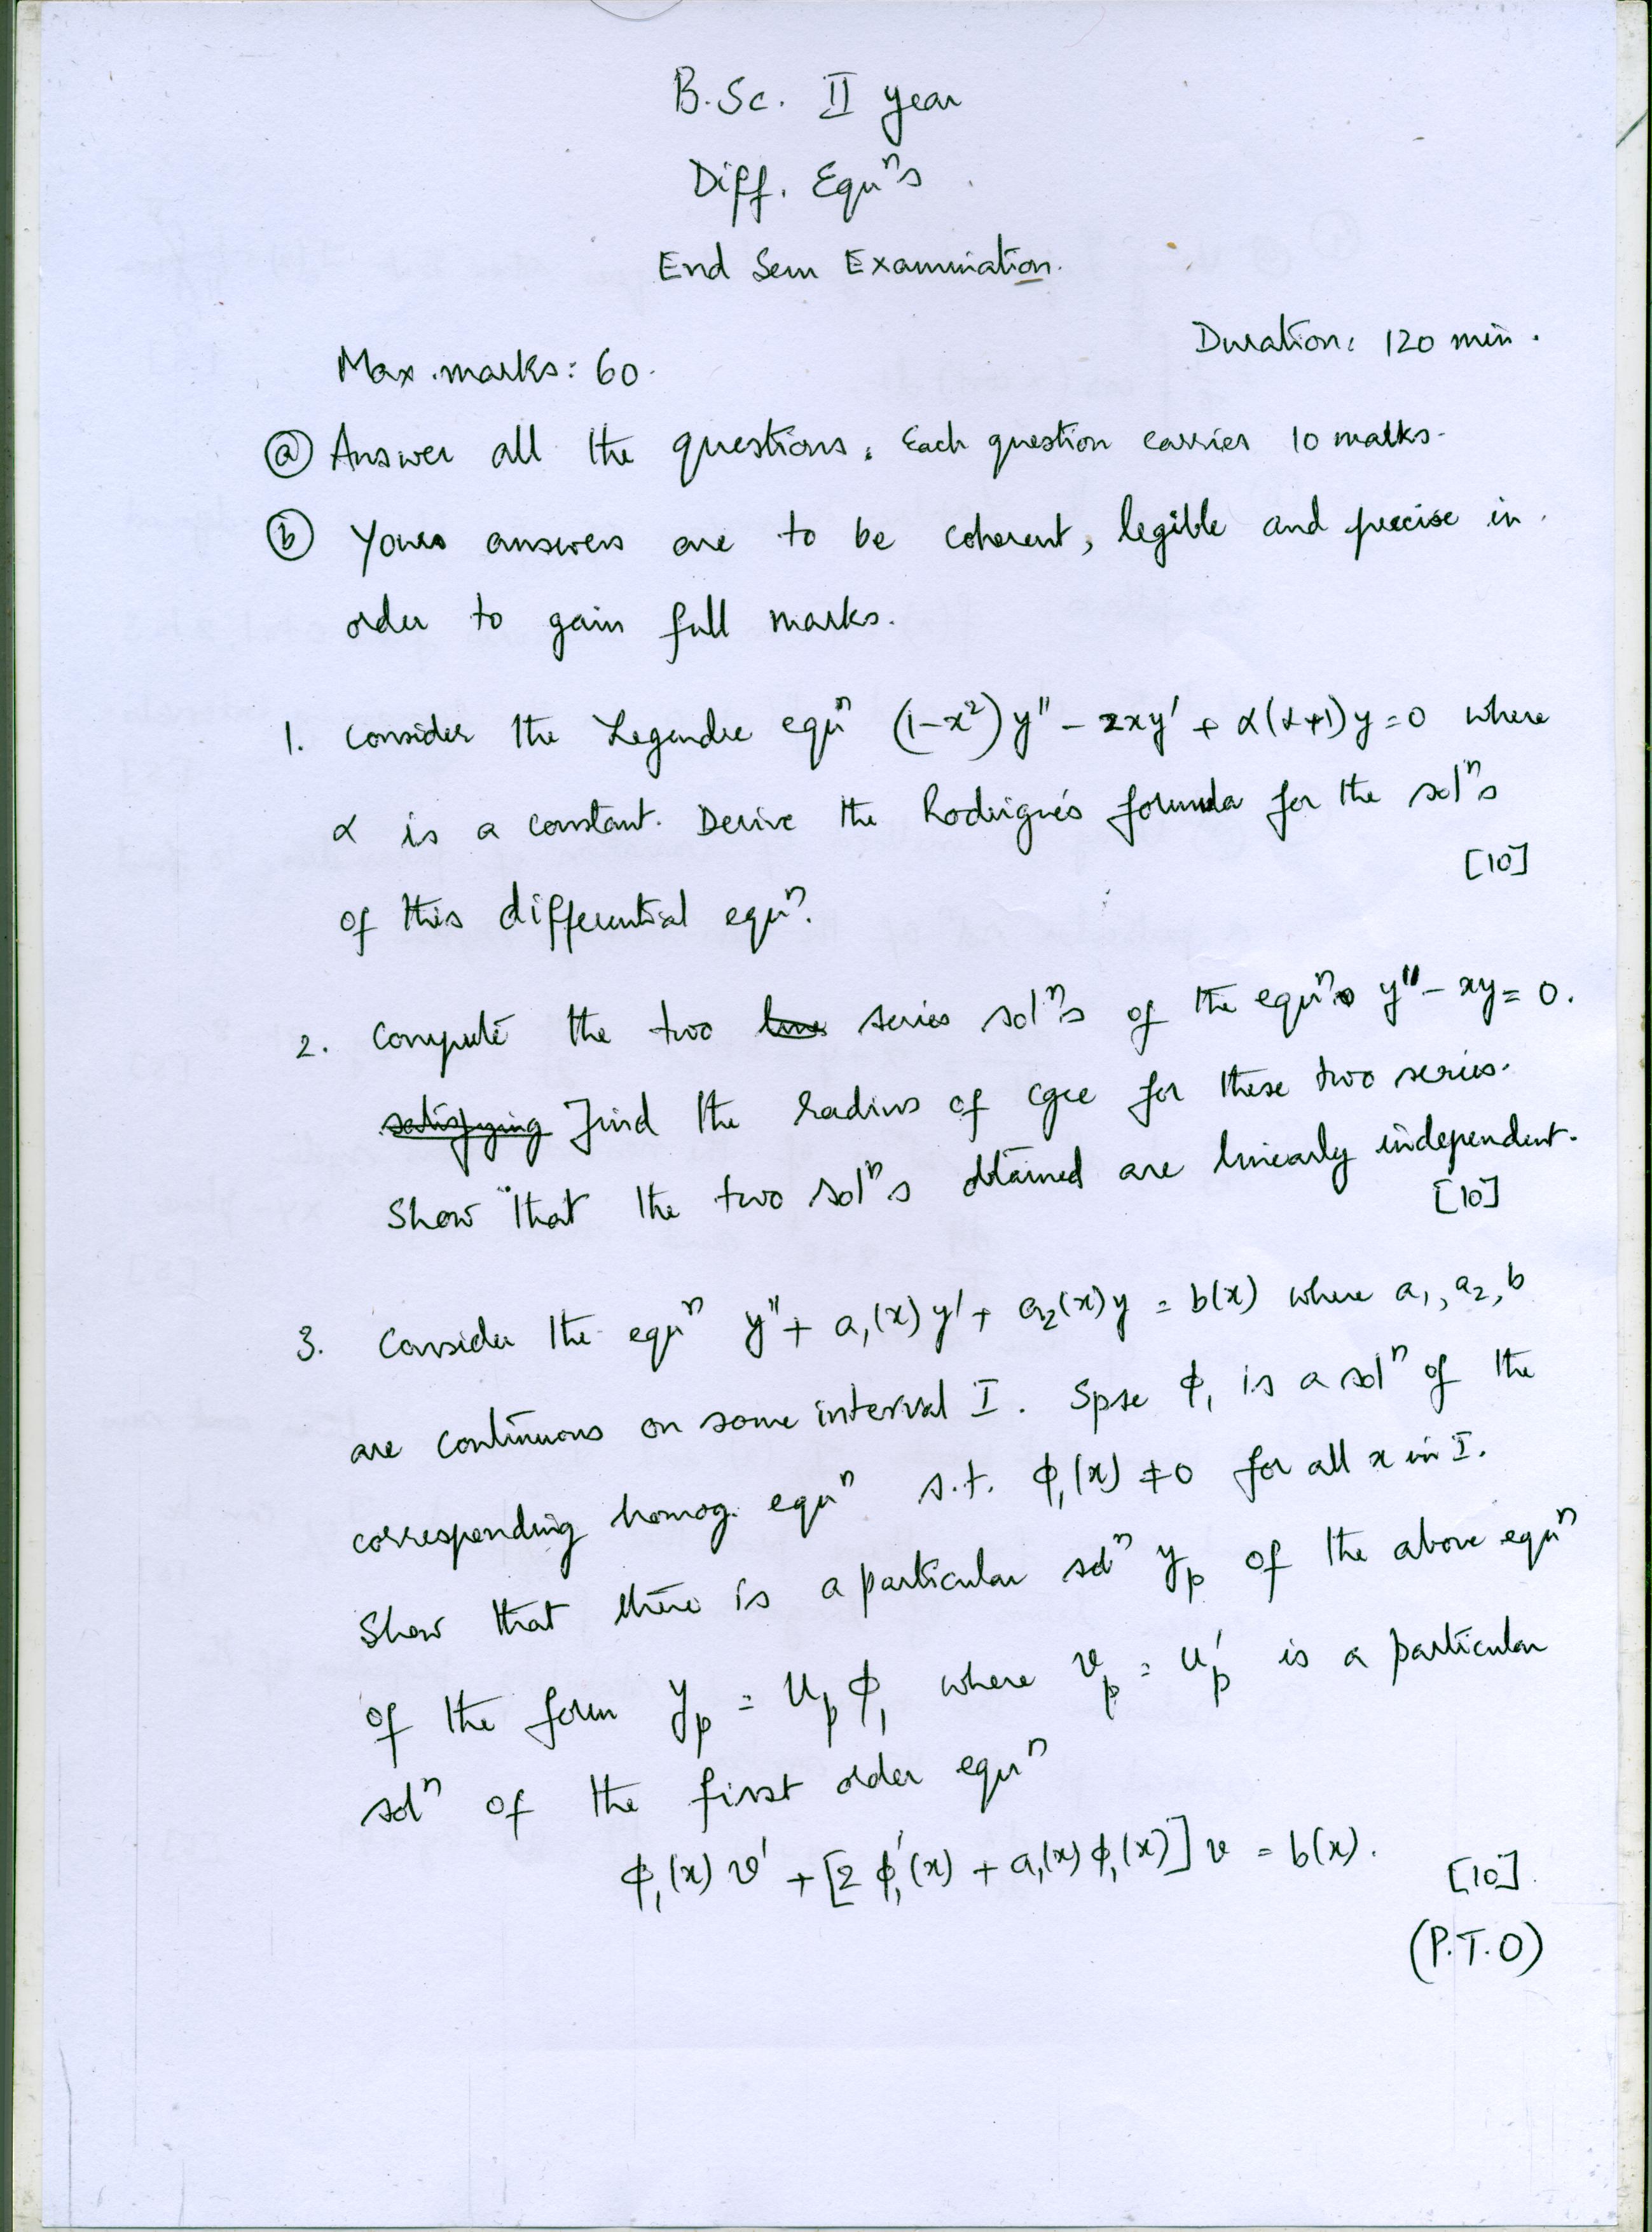 B.Sc. II year
Diff. Equⁿs.
End Sem Examination.
Duration: 120 min.
Max. marks: 60.
ⓐ Answer all the questions. Each question carries 10 marks.
ⓑ Yours answers are to be coherent, legible and precise in
order to gain full marks.
1. Consider the Legendre equⁿ (1-x²)y'' - 2xy' + α(α+1)y = 0 where
α is a constant. Derive the Rodrigue's formula for the solⁿs
of this differential equⁿ. [10]
2. Compute the two series solⁿs of the equⁿs y'' - xy = 0.
satisfying Find the radius of cgce for these two series.
Show that the two solⁿs obtained are linearly independent.
[10]
3. Consider the equⁿ y'' + a₁(x)y' + a₂(x)y = b(x) where a₁, a₂, b
are continuous on some interval I. Spse φ₁ is a solⁿ of the
corresponding homog. equⁿ s.t. φ₁(x) ≠ 0 for all x in I.
Show that there is a particular solⁿ yₚ of the above equⁿ
of the form yₚ = uₚφ₁ where vₚ = uₚ' is a particular
solⁿ of the first order equⁿ
φ₁(x)v' + [2φ₁'(x) + a₁(x)φ₁(x)]v = b(x).
[10].
(P.T.O)